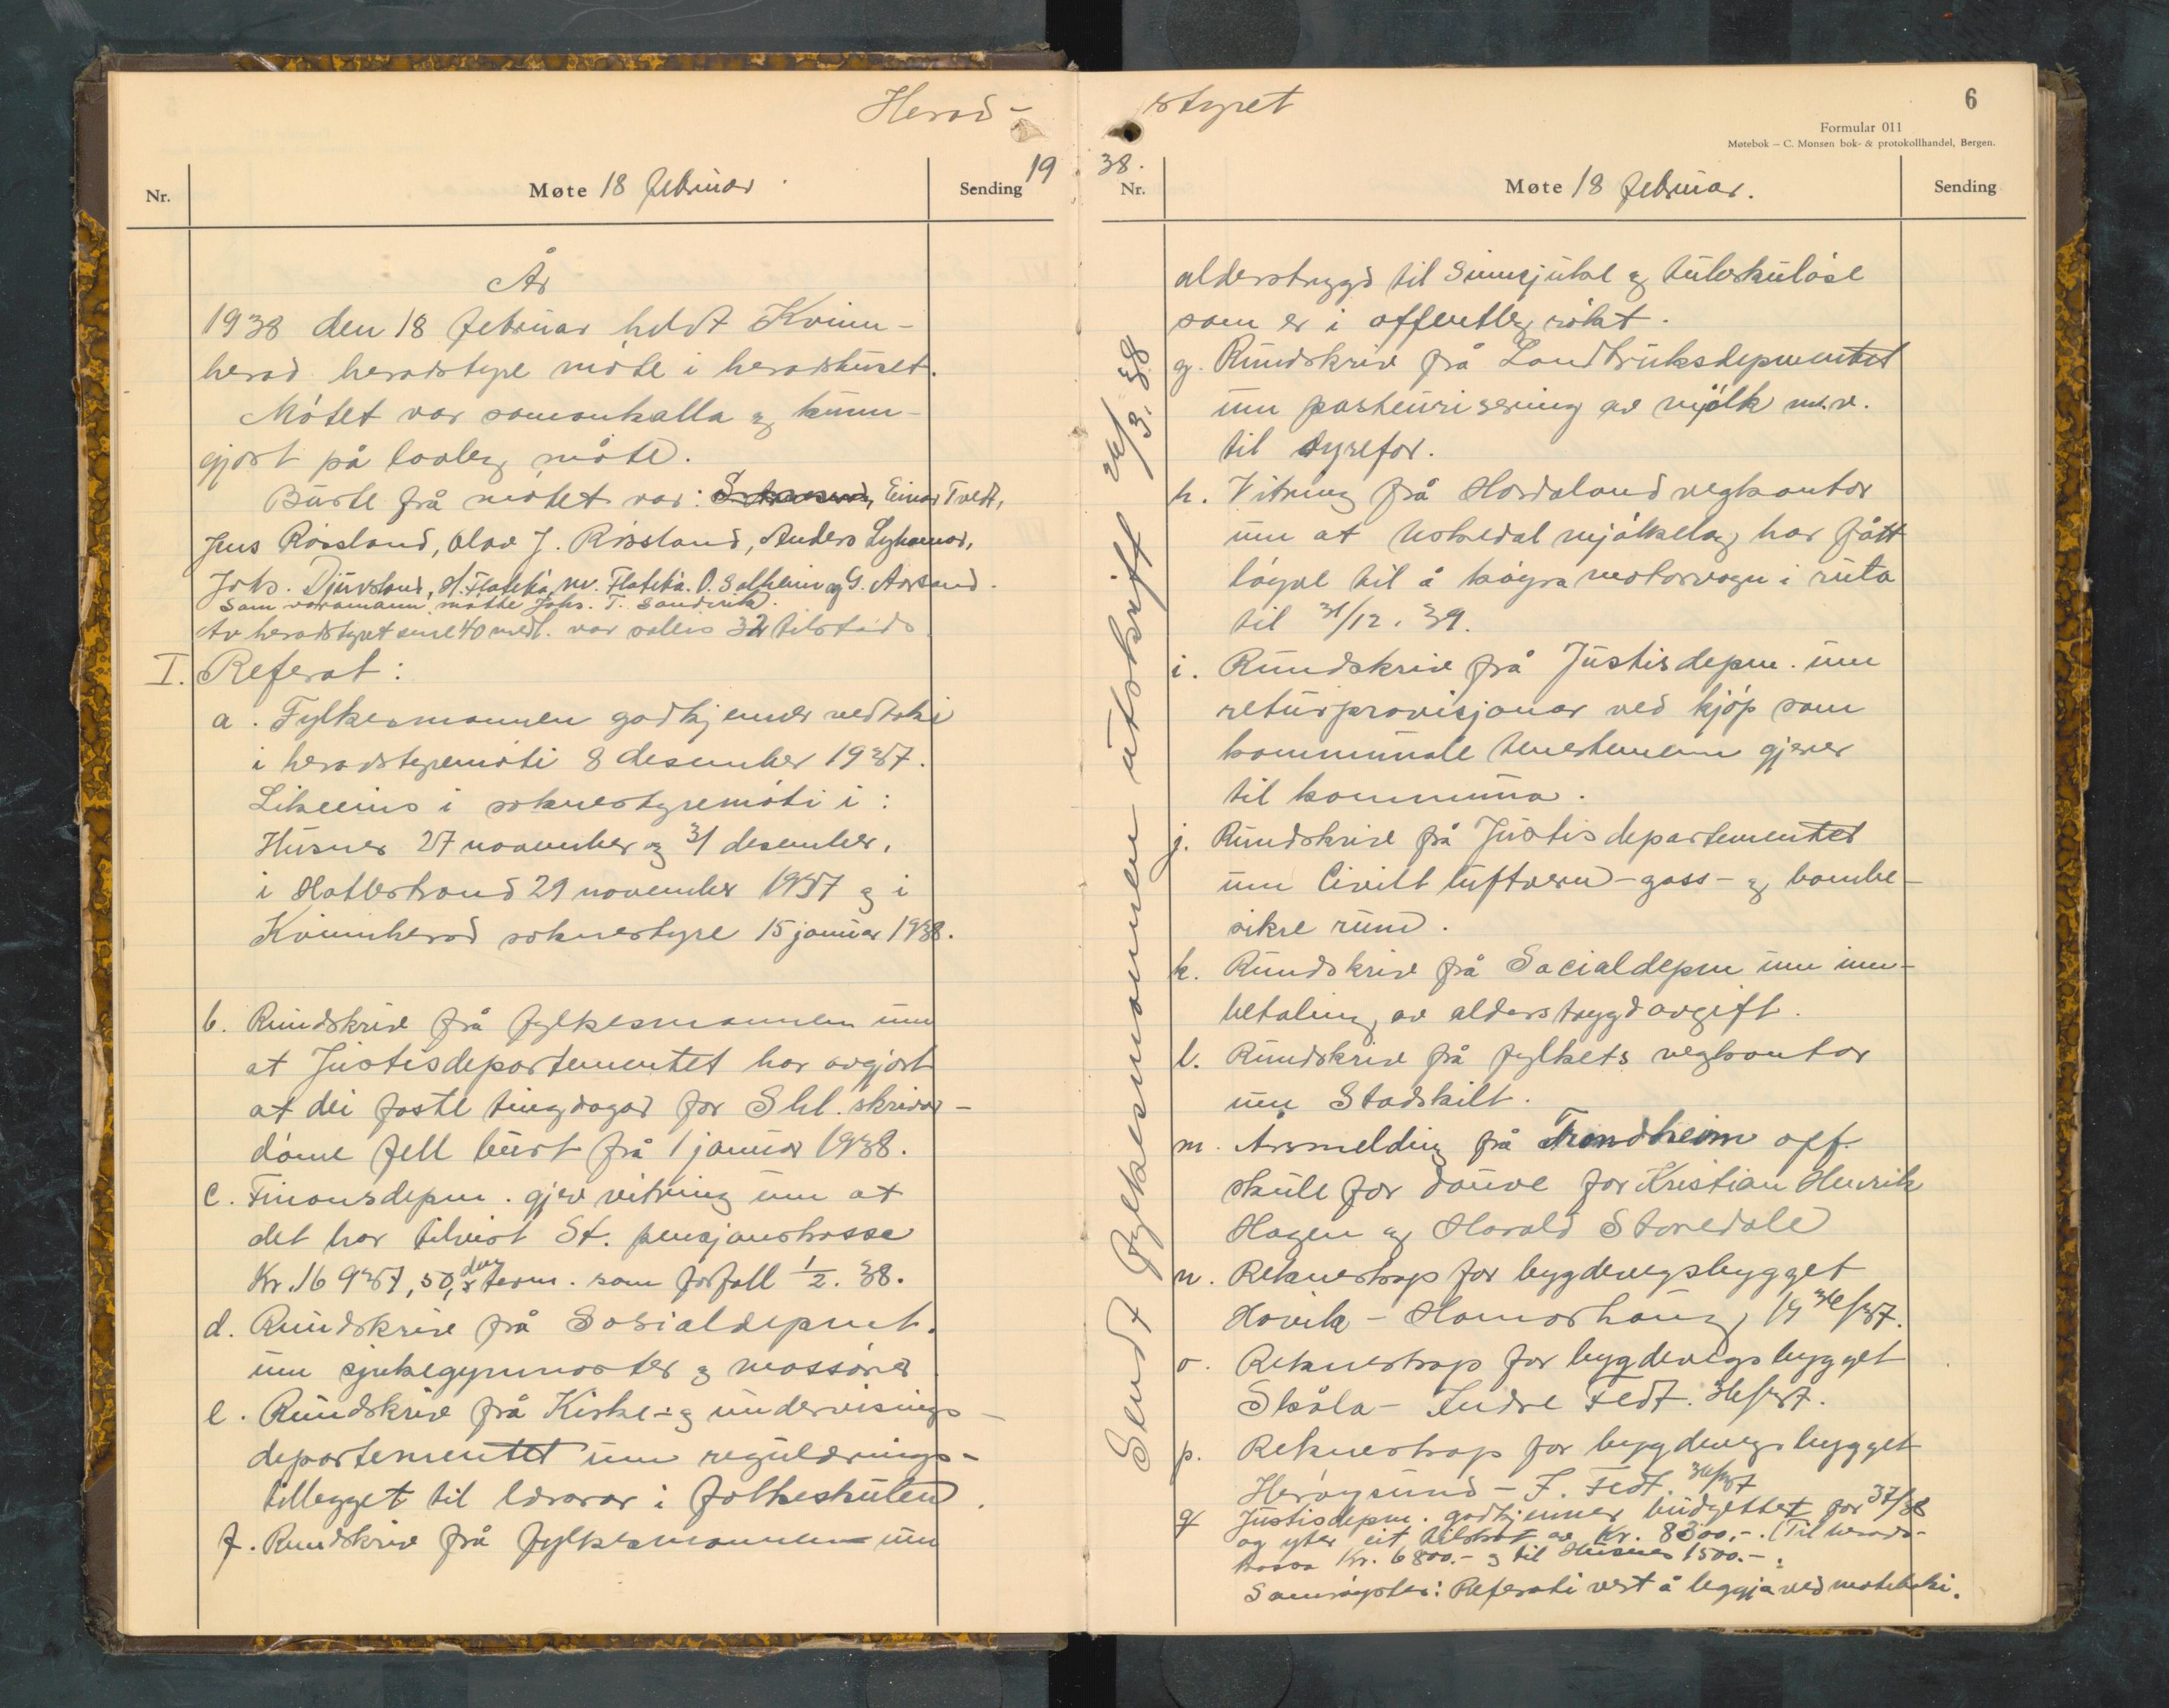 Herad-
19
Nr.
Møte 18 februar.
Sending
År
1938 den 18 februar heldt Kvinn-
herad heradstyre møte i heradshuset.
Møtet var samankalla og kunn-
gjort på lovleg måte.
Burte frå møtet var: Einar Tvedt,
Jens Røssland, Olav J. Røssland, Anders Lyhamar,
Johs. Djuvsland, H. Flatebø, M. Flatebø. O. Solheim og G. Aarsand.
Som varamann møtte Johs. T. Sandvik.
Av heradstyret sine 40 medl. var soleis 32 tilstads.
I. Referat:
a. Fylkesmannen godkjenner vedtaki
i heradstyremøti 8 desember 1937.
Likeeins i soknestyremøti i:
Husnes 27 november og 31 desember,
i Hatlestrand 29 november 1937 og i
Kvinnherad soknestyre 15 januar 1938.
b. Rundskriv frå fylkesmannen um
at Justisdepartementet har avgjort
at dei faste tingdagar for Shl. skrivar-
døme fell burt frå 1 januar 1938.
c. Finansdepm. gjev vitring um at
det har tilvist St. pensjonskasse
Kr. 16 937,50, den term. som forfall 1/2. 38.
d. Rundskriv frå Sosialdepmt.
um sjukegymnaster og massører
e. Rundskriv frå Kirke- og undervisings-
departementet um regulerings-
tillegget til lærarar i folkeskulen.
f. Rundskriv frå fylkesmannen um
styret
6
Formular 011
Møtebok – C. Monsen bok- & protokollhandel, Bergen.
38.
Nr.
Møte 18 februar.
Sending
alderstrygd til sinnsjuke og tuberkuløse
som er i offentleg røkt.
g. Rundskriv frå Landbruksdepmentet
um pasteurisering av mjølk m.v.
til dyrefor.
h. Vitring frå Hordaland vegkontor
um at Uskedal mjølkelag har fått
løyve til å køyra motorvogn i ruta
til 31/12. 39.
i. Rundskriv frå Justisdepm. um
returprovisjonar ved kjøp som
kommunale tenestemenn gjerer
til kommuna.
j. Rundskriv frå Justisdepartementet
um Civilt luftvern - gass- og bombe-
sikre rum.
k. Rundskriv frå Socialdepm um inn-
betaling av alderstrygdavgift.
l. Rundskriv frå fylkets vegkontor
um Stadskilt.
m. Årsmelding frå Trondheim off.
skule for døuve for Kristian Henrik
Hagen og Harald Staredale
n. Rekneskap for bygdevegsbygget
Havik - Hamarhaug, 19 36/37.
o. Rekneskap for bygdevegsbygget
Skåla - Indre Fedt. 36/37.
p. Rekneskap for bygdevegsbygget
Herøysund - I. Fedt. 36/37
q Justisdepm. godkjenner budgettet for 37/38
og yter eit tilskot av Kr. 8300,-. (Til herads-
kassa Kr. 6800.- og til Husnes 1500.-.
Samrøystes: Referati vert å leggja ved møteboki.
Sendt fylkesmannen utskrift 26/3. 38